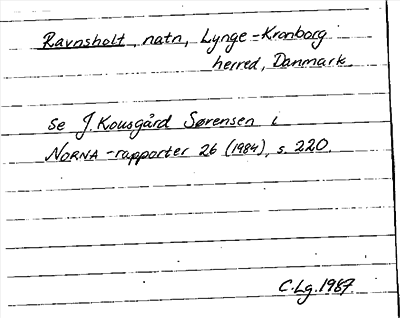 Ravnsholt, natn, Lynge-Kronborg
herred, Danmark.
Se J. Kousgård Sørensen i
NORNA-rapporter 26 (1984), s. 220.
C.Lg. 1987.